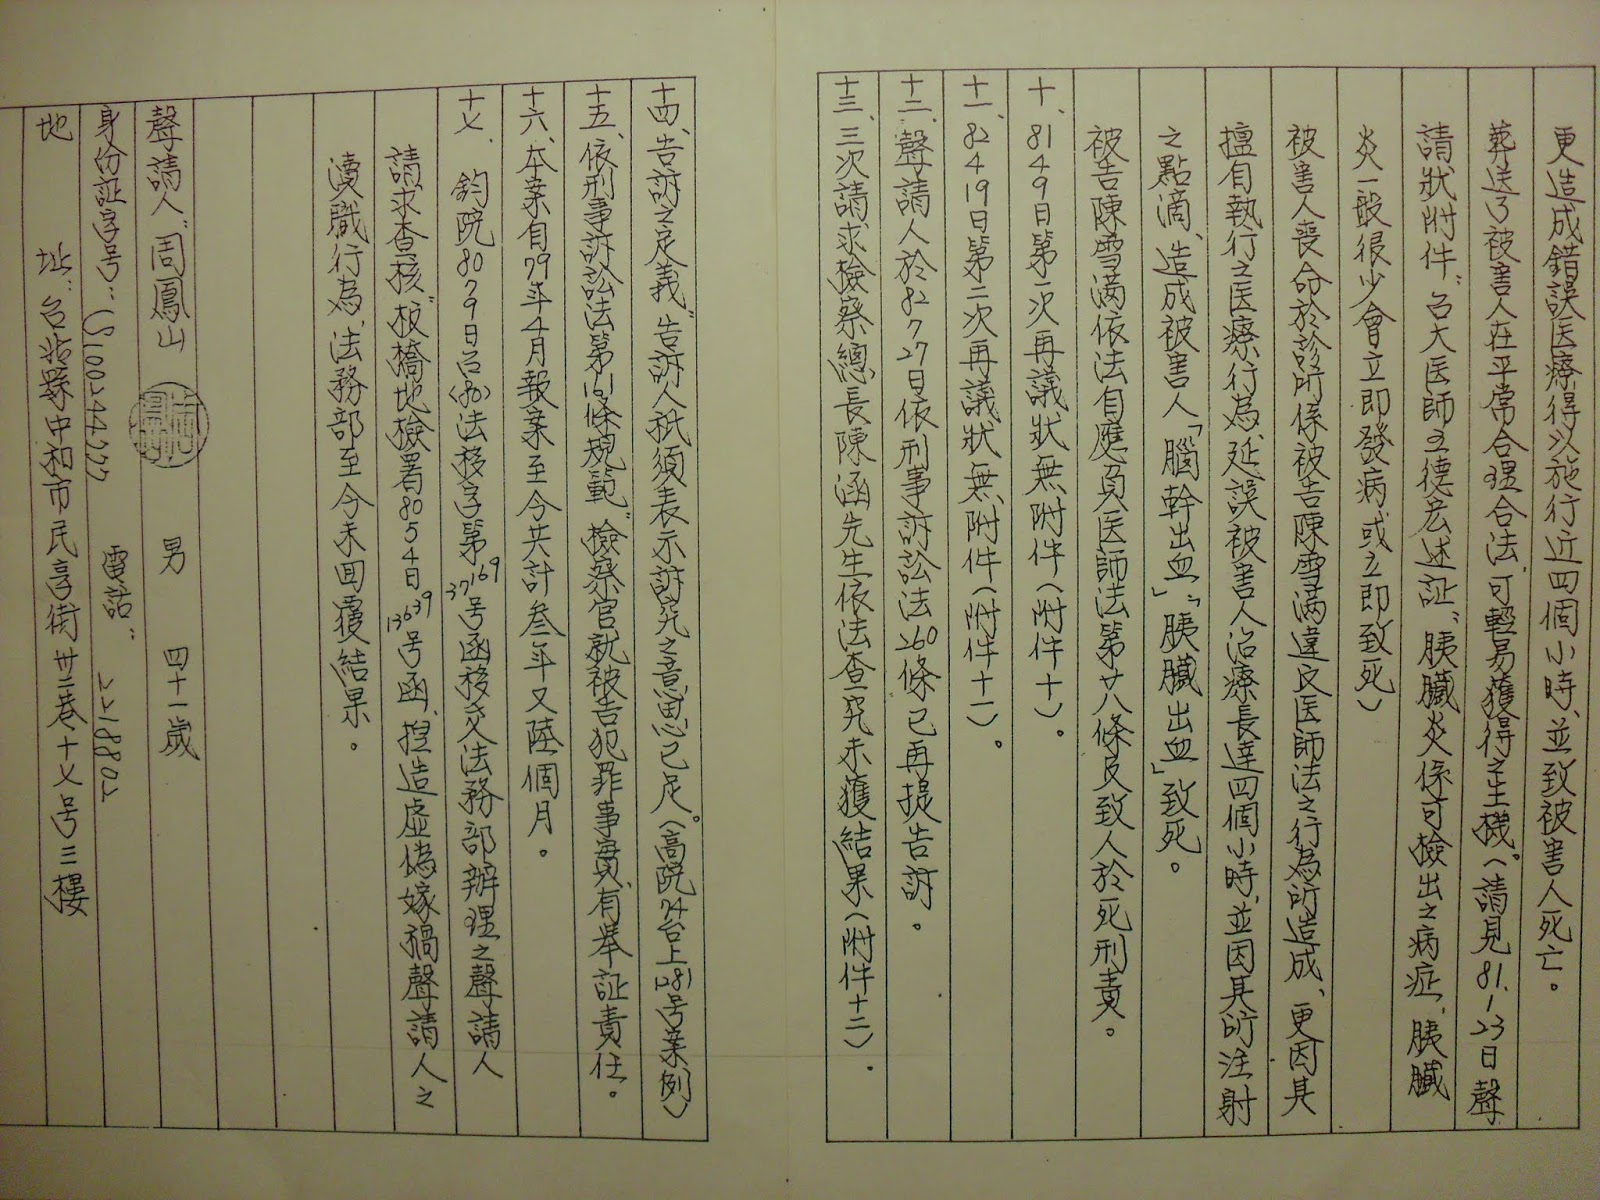 更造成錯誤医療得以施行近四個小時、並致被害人死亡。
葬送了被害人在平常合理合法、可輕易獲得之生機。(請見81.1.23日聲
請狀附件"台大医師王德宏述証"、胰臟炎係可檢出之病症、胰臟
炎一般很少會立即發病或立即致死)
被害人喪命於診所係被告陳雪満違反医師法之行為所造成、更因其
擅自執行之医療行為、延誤被害人治療長達四個小時、並因其所注射
之點滴、造成被害人「腦幹出血」、「胰臟出血」致死。
被告陳雪满依法自應負医師法第廿八條及致人於死刑責。
十、81 4 9日第一次再議狀無附件(附件十)。
十一、82 4 19日第二次再議狀無附件(附件十一)。
十二、聲請人於82 7 27日依刑事訴訟法260條已再提告訴。
十三、三次請求檢察總長陳涵先生依法查究未獲結果(附件十二)。
十四、告訴之足義"告訴人祇須表示訴究之意思已足"。(高院74台上1281号案例)
十五、依刑事訴訟法第161條規範"檢察官就被告犯罪事實、有舉証責任。
十六、本案自79年4月報案至今共計叁年又陸個月。
十七、鈞院80 7 9日台(80)法移字第37169号函移交法務部辦理之聲請人
請求查核"板橋地檢署80 5 4日13639号函、捏造虛偽嫁禍聲請人之
瀆職行為、法務部至今未回覆結果。
聲請人"周鳳山 男 四十一歲
身份証字号: 電話:
地址:台北縣中和市民享街卅二巷十七号三樓